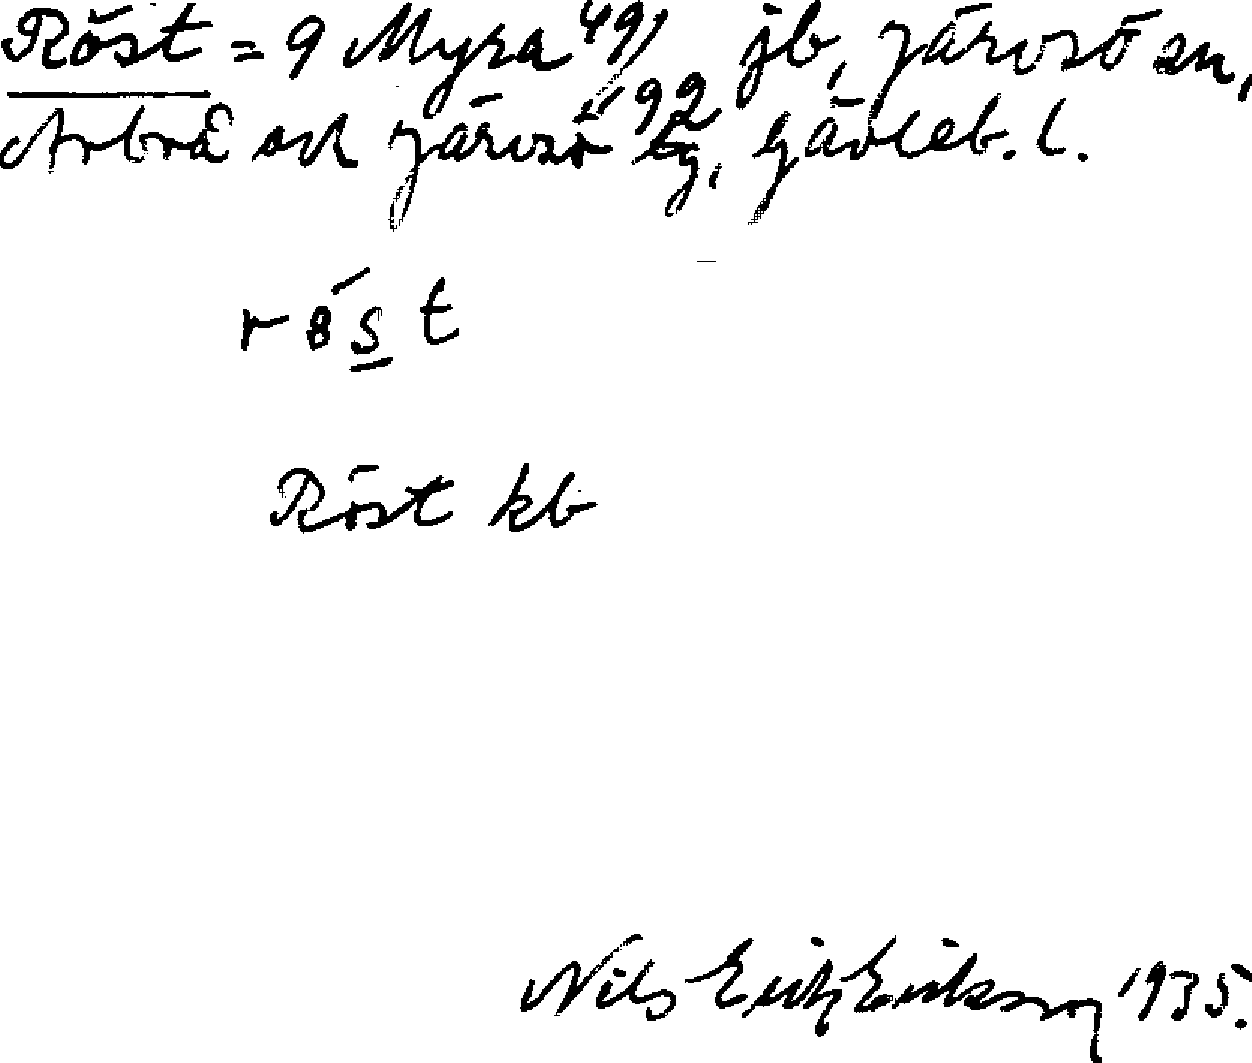 Röst = 9 Myra 4⁹⁄₉₂ jb, Järvsö sn,
Arbrå och Järvsö tg, Gävleb. l.
Röst kb
Nils Erik Eriksson 1935.